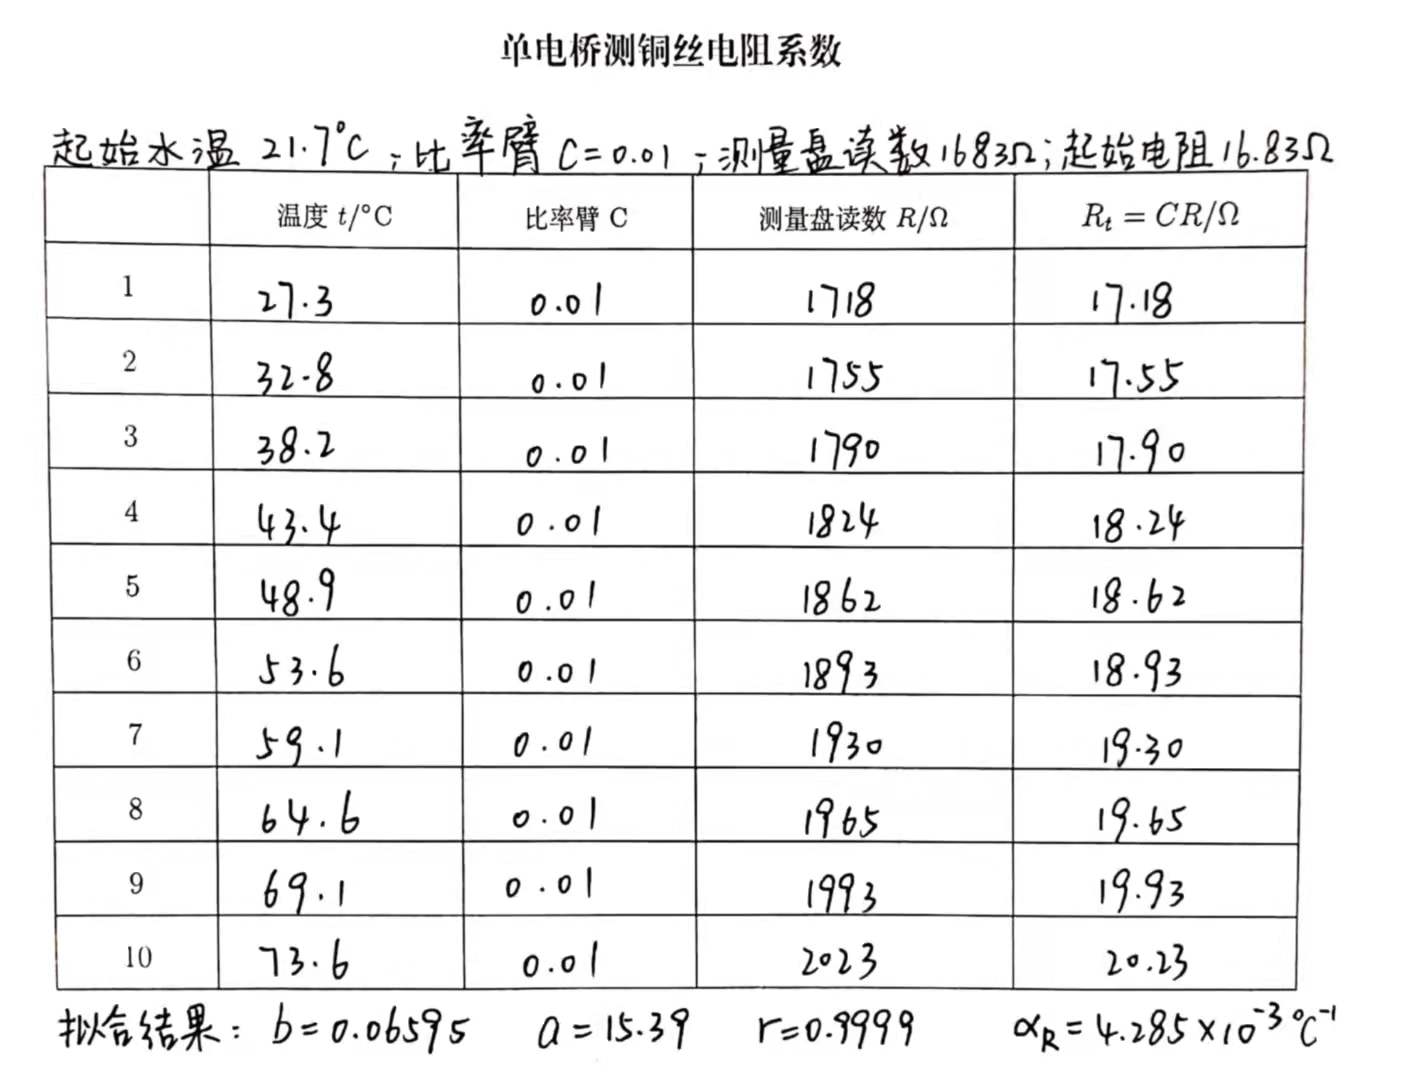 单电桥测铜丝电阻系数
起始水温 21.7°C ; 比率臂 C=0.01 ; 测量盘读数1683Ω; 起始电阻16.83Ω
温度 t/°C 比率臂 C 测量盘读数 R/Ω Rt = CR/Ω
1 27.3 0.01 1718 17.18
2 32.8 0.01 1755 17.55
3 38.2 0.01 1790 17.90
4 43.4 0.01 1824 18.24
5 48.9 0.01 1862 18.62
6 53.6 0.01 1893 18.93
7 59.1 0.01 1930 19.30
8 64.6 0.01 1965 19.65
9 69.1 0.01 1993 19.93
10 73.6 0.01 2023 20.23
拟合结果: b=0.06595 a=15.39 r=0.9999 αR=4.285×10⁻³ °C⁻¹